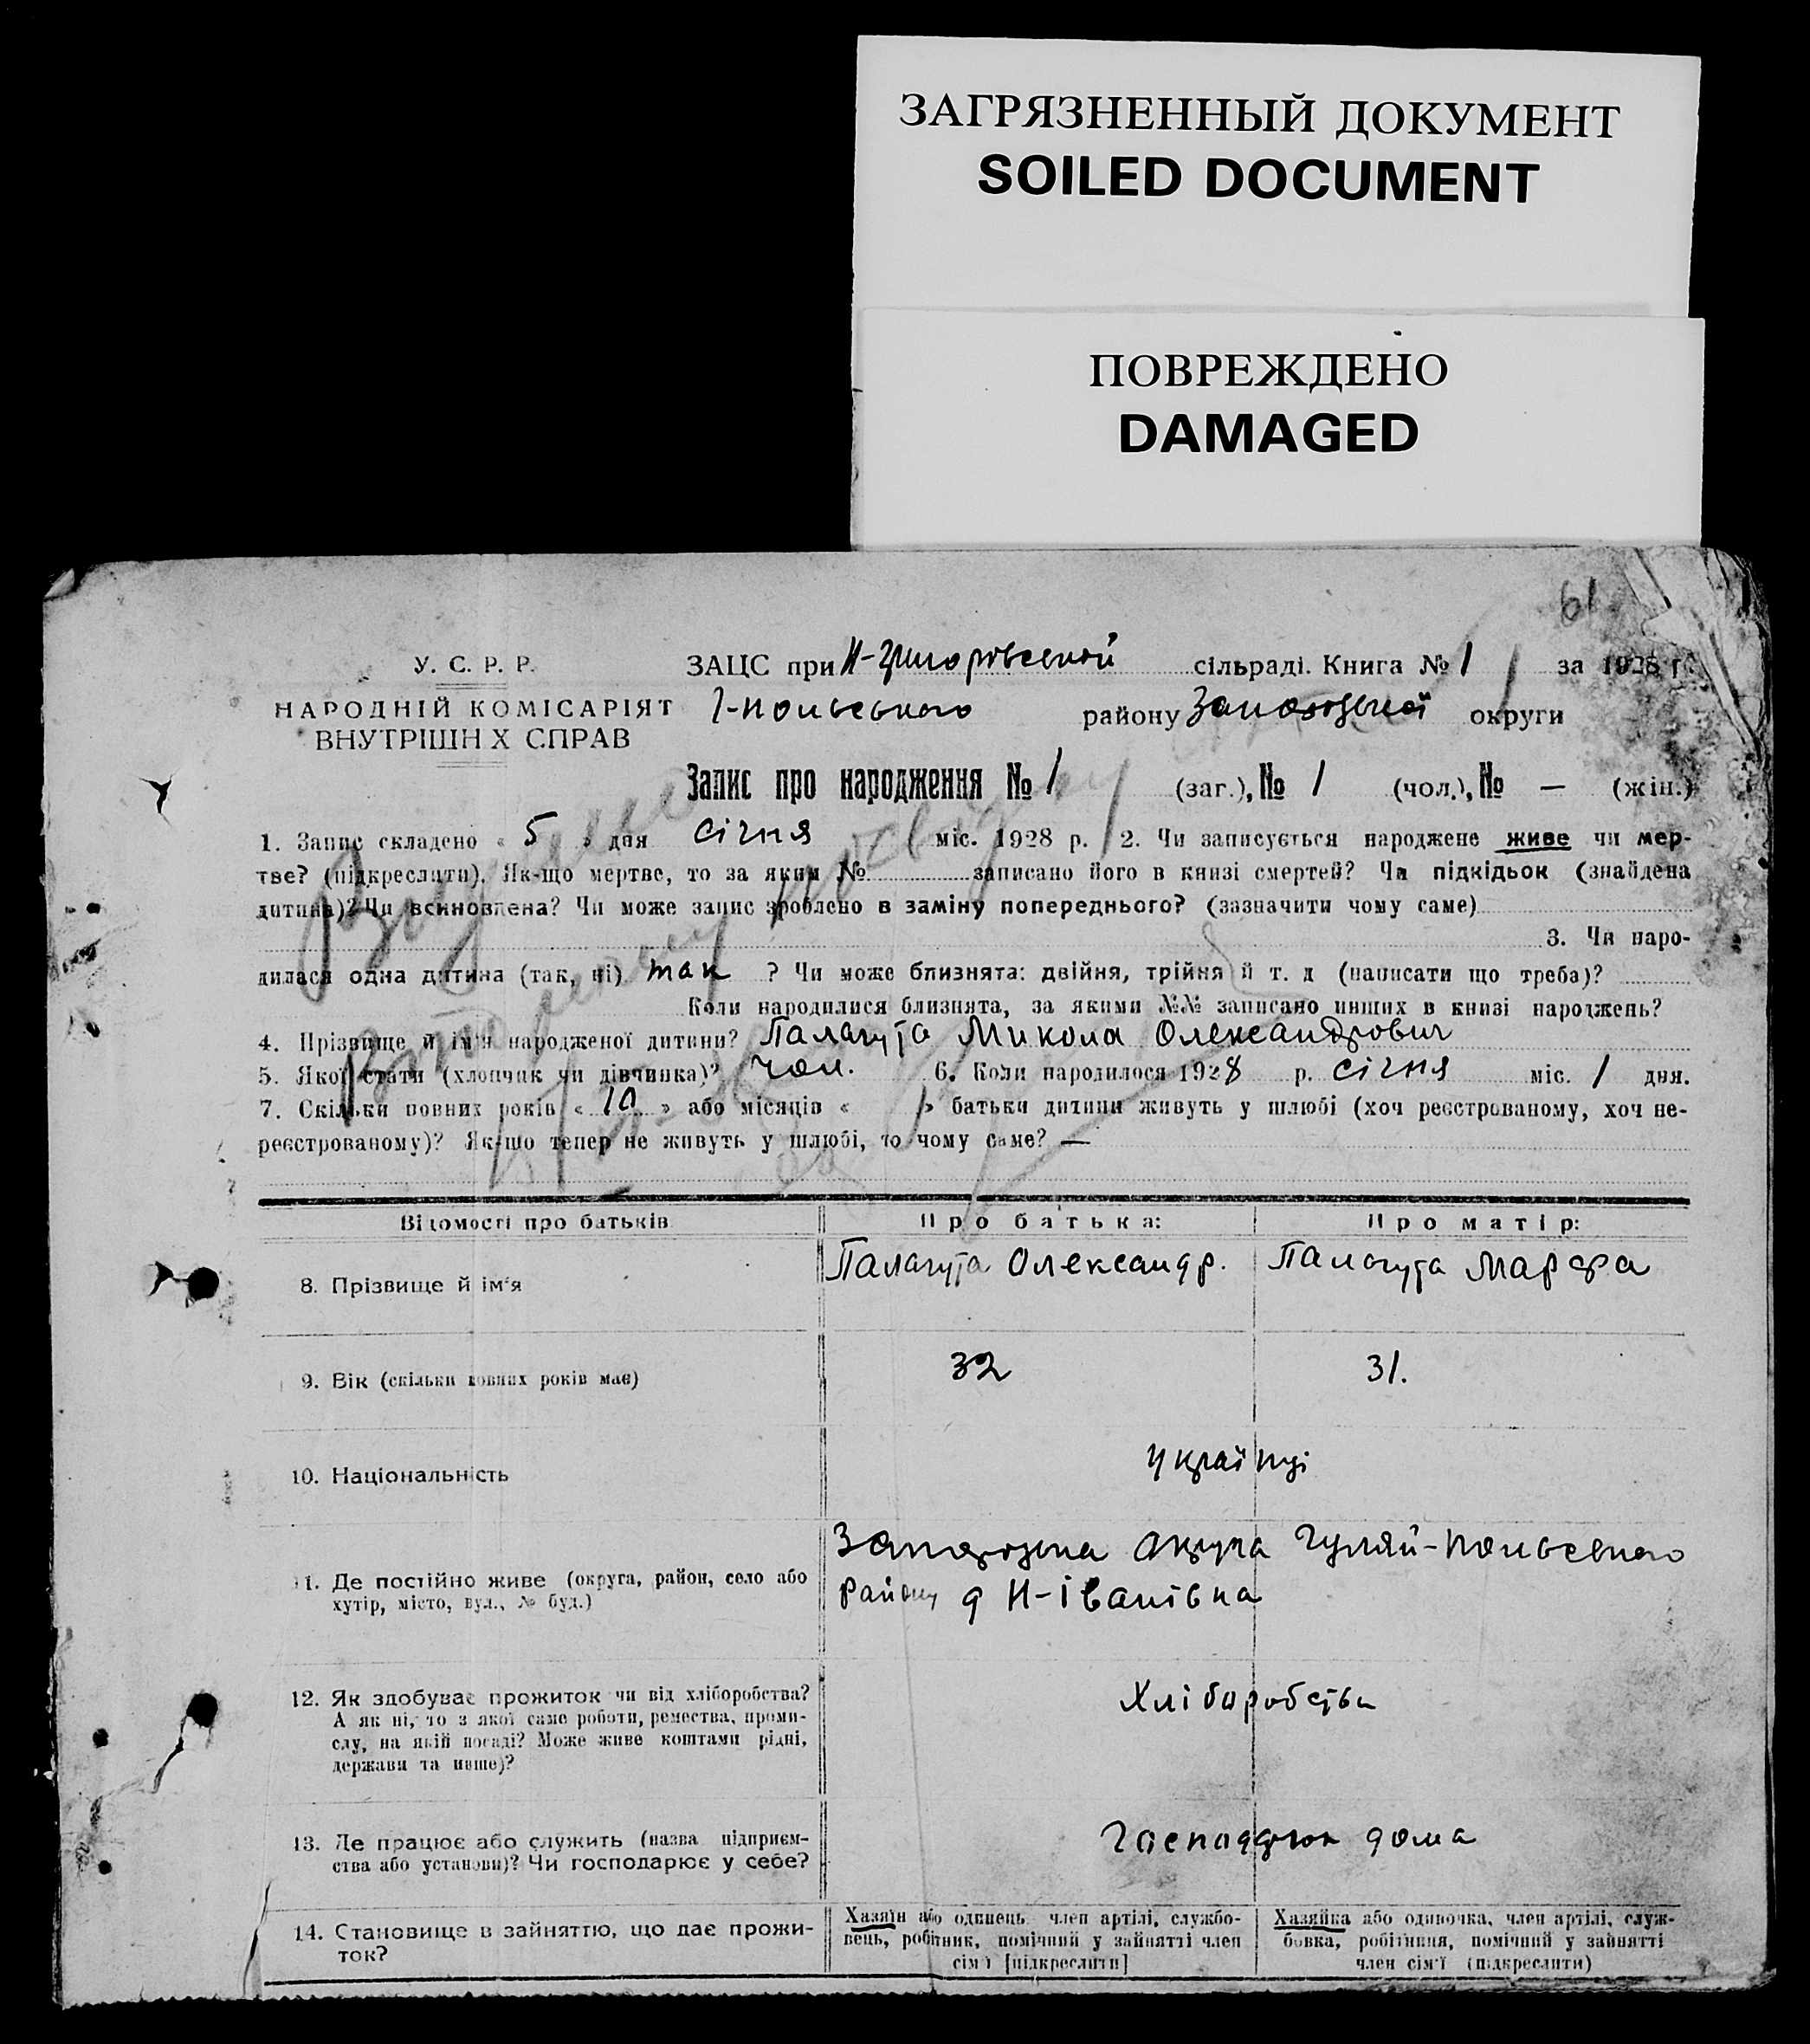 ЗАГРЯЗНЕННЫЙ ДОКУМЕНТ
SOILED DOCUMENT
ПОВРЕЖДЕНО
DAMAGED
61
У. С. Р. Р.
НАРОДНІЙ КОМІСАРІЯТ
ВНУТРІШН Х СПРАВ
ЗАЦС при Н-Григоровській сільраді. Книга № 1 за 1928 г.
Г-Польського району Запорозької округи
Запис про народження № 1 (заг.), № 1 (чол.), № — (жін.)
1. Запис складено « 5 » дня січня міс. 1928 р. 2. Чи записується народжене живе чи мер-
тве? (підкреслити). Як-що мертве, то за яким № записано його в книзі смертей? Чи підкідьок (знайдена
дитина)? Чи всиновлена? Чи може запис зроблено в заміну попереднього? (зазначити чому саме)
3. Чи наро-
дилася одна дитина (так, ні) так ? Чи може близнята: двійня, трійня й т. д (написати що треба)?
Коли народилися близнята, за якими №№ записано инших в книзі народжень?
4. Прізвище й ім'я народженої дитини? Палагута Микола Олександрович
5. Якої стати (хлопчик чи дівчинка)? чол. 6. Коли народилося 1928 р. січня міс. 1 дня.
7. Скільки повних років « 10 » або місяців « » батьки дитини живуть у шлюбі (хоч реєстрованому, хоч не-
реєстрованому)? Як-що тепер не живуть у шлюбі, то чому саме? —
Відомості про батьків
Про батька:
Про матір:
8. Прізвище й ім'я
Палагута Олександр.
Палагута Марфа
9. Вік (скільки повних років має)
32
31.
10. Національність
Українці
11. Де постійно живе (округа, район, село або
хутір, місто, вул., № буд.)
Запорозька округа Гуляй-Польського
району д Н-Іванівка
12. Як здобуває прожиток чи від хліборобства?
А як ні, то з якої саме роботи, ремества, проми-
слу, на якій посаді? Може живе коштами рідні,
держави та инше)?
Хліборобства
13. Де працює або служить (назва підприєм-
ства або установи)? Чи господарює у себе?
дома
14. Становище в зайняттю, що дає прожи-
ток?
Хазяїн або одинець член артілі, службо-
вець, робітник, помічний у зайнятті член
сім'ї [підкреслити]
Хазяйка або одиночка, член артілі, служ-
бовка, робітниця, помічний у зайнятті
член сім'ї (підкреслити)